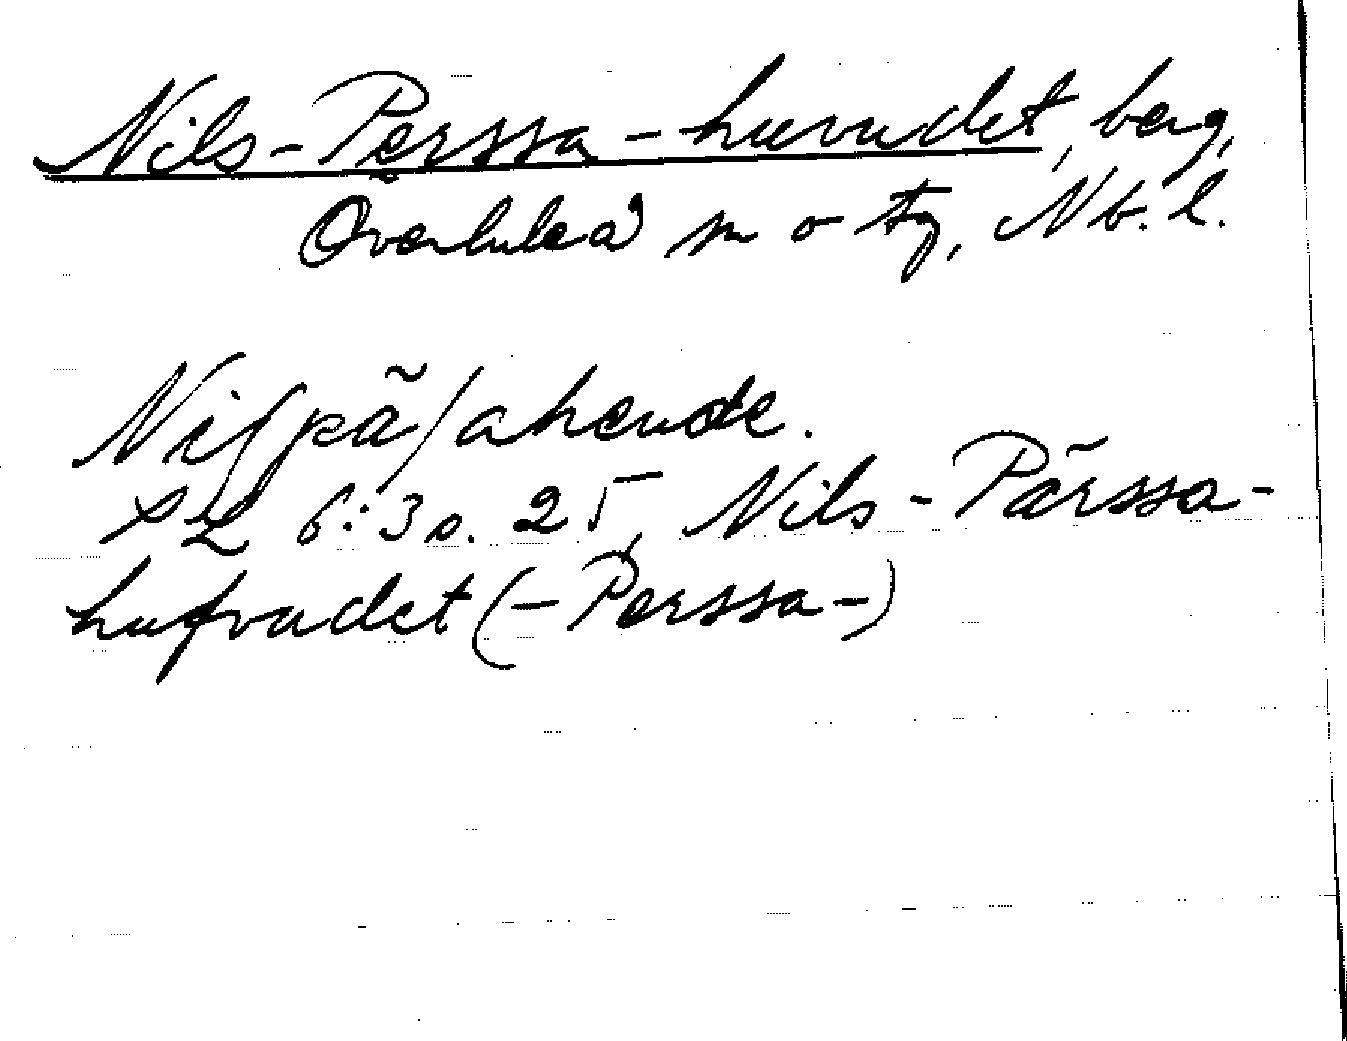 Nils-Perssa-huvudet, berg,
Överluleå sn o tg, Nb. l.
Niſpã/ahende.
6:3 s. 25, Nils-Pärssa-
hufvudet (-Perssa-)